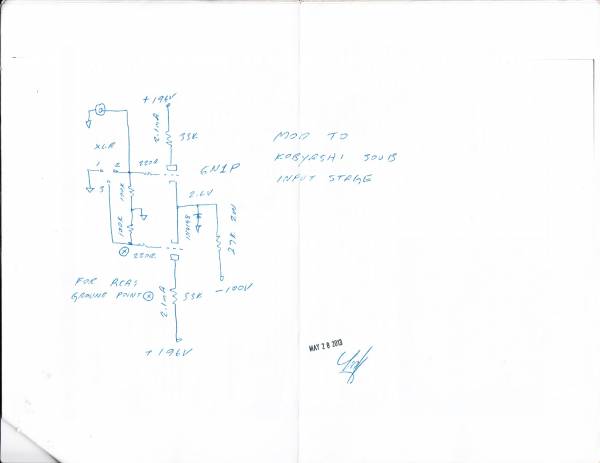 +196V
2.1mA
33K
XLR
1
2
3
220R
6N1P
100K
100K
2.6V
1N4148
27K 2W
220R
X
FOR RCAS
GROUND POINT X
2.1mA
33K
-100V
+196V
MOD TO
KOBYASHI 300B
INPUT STAGE
MAY 28 2013